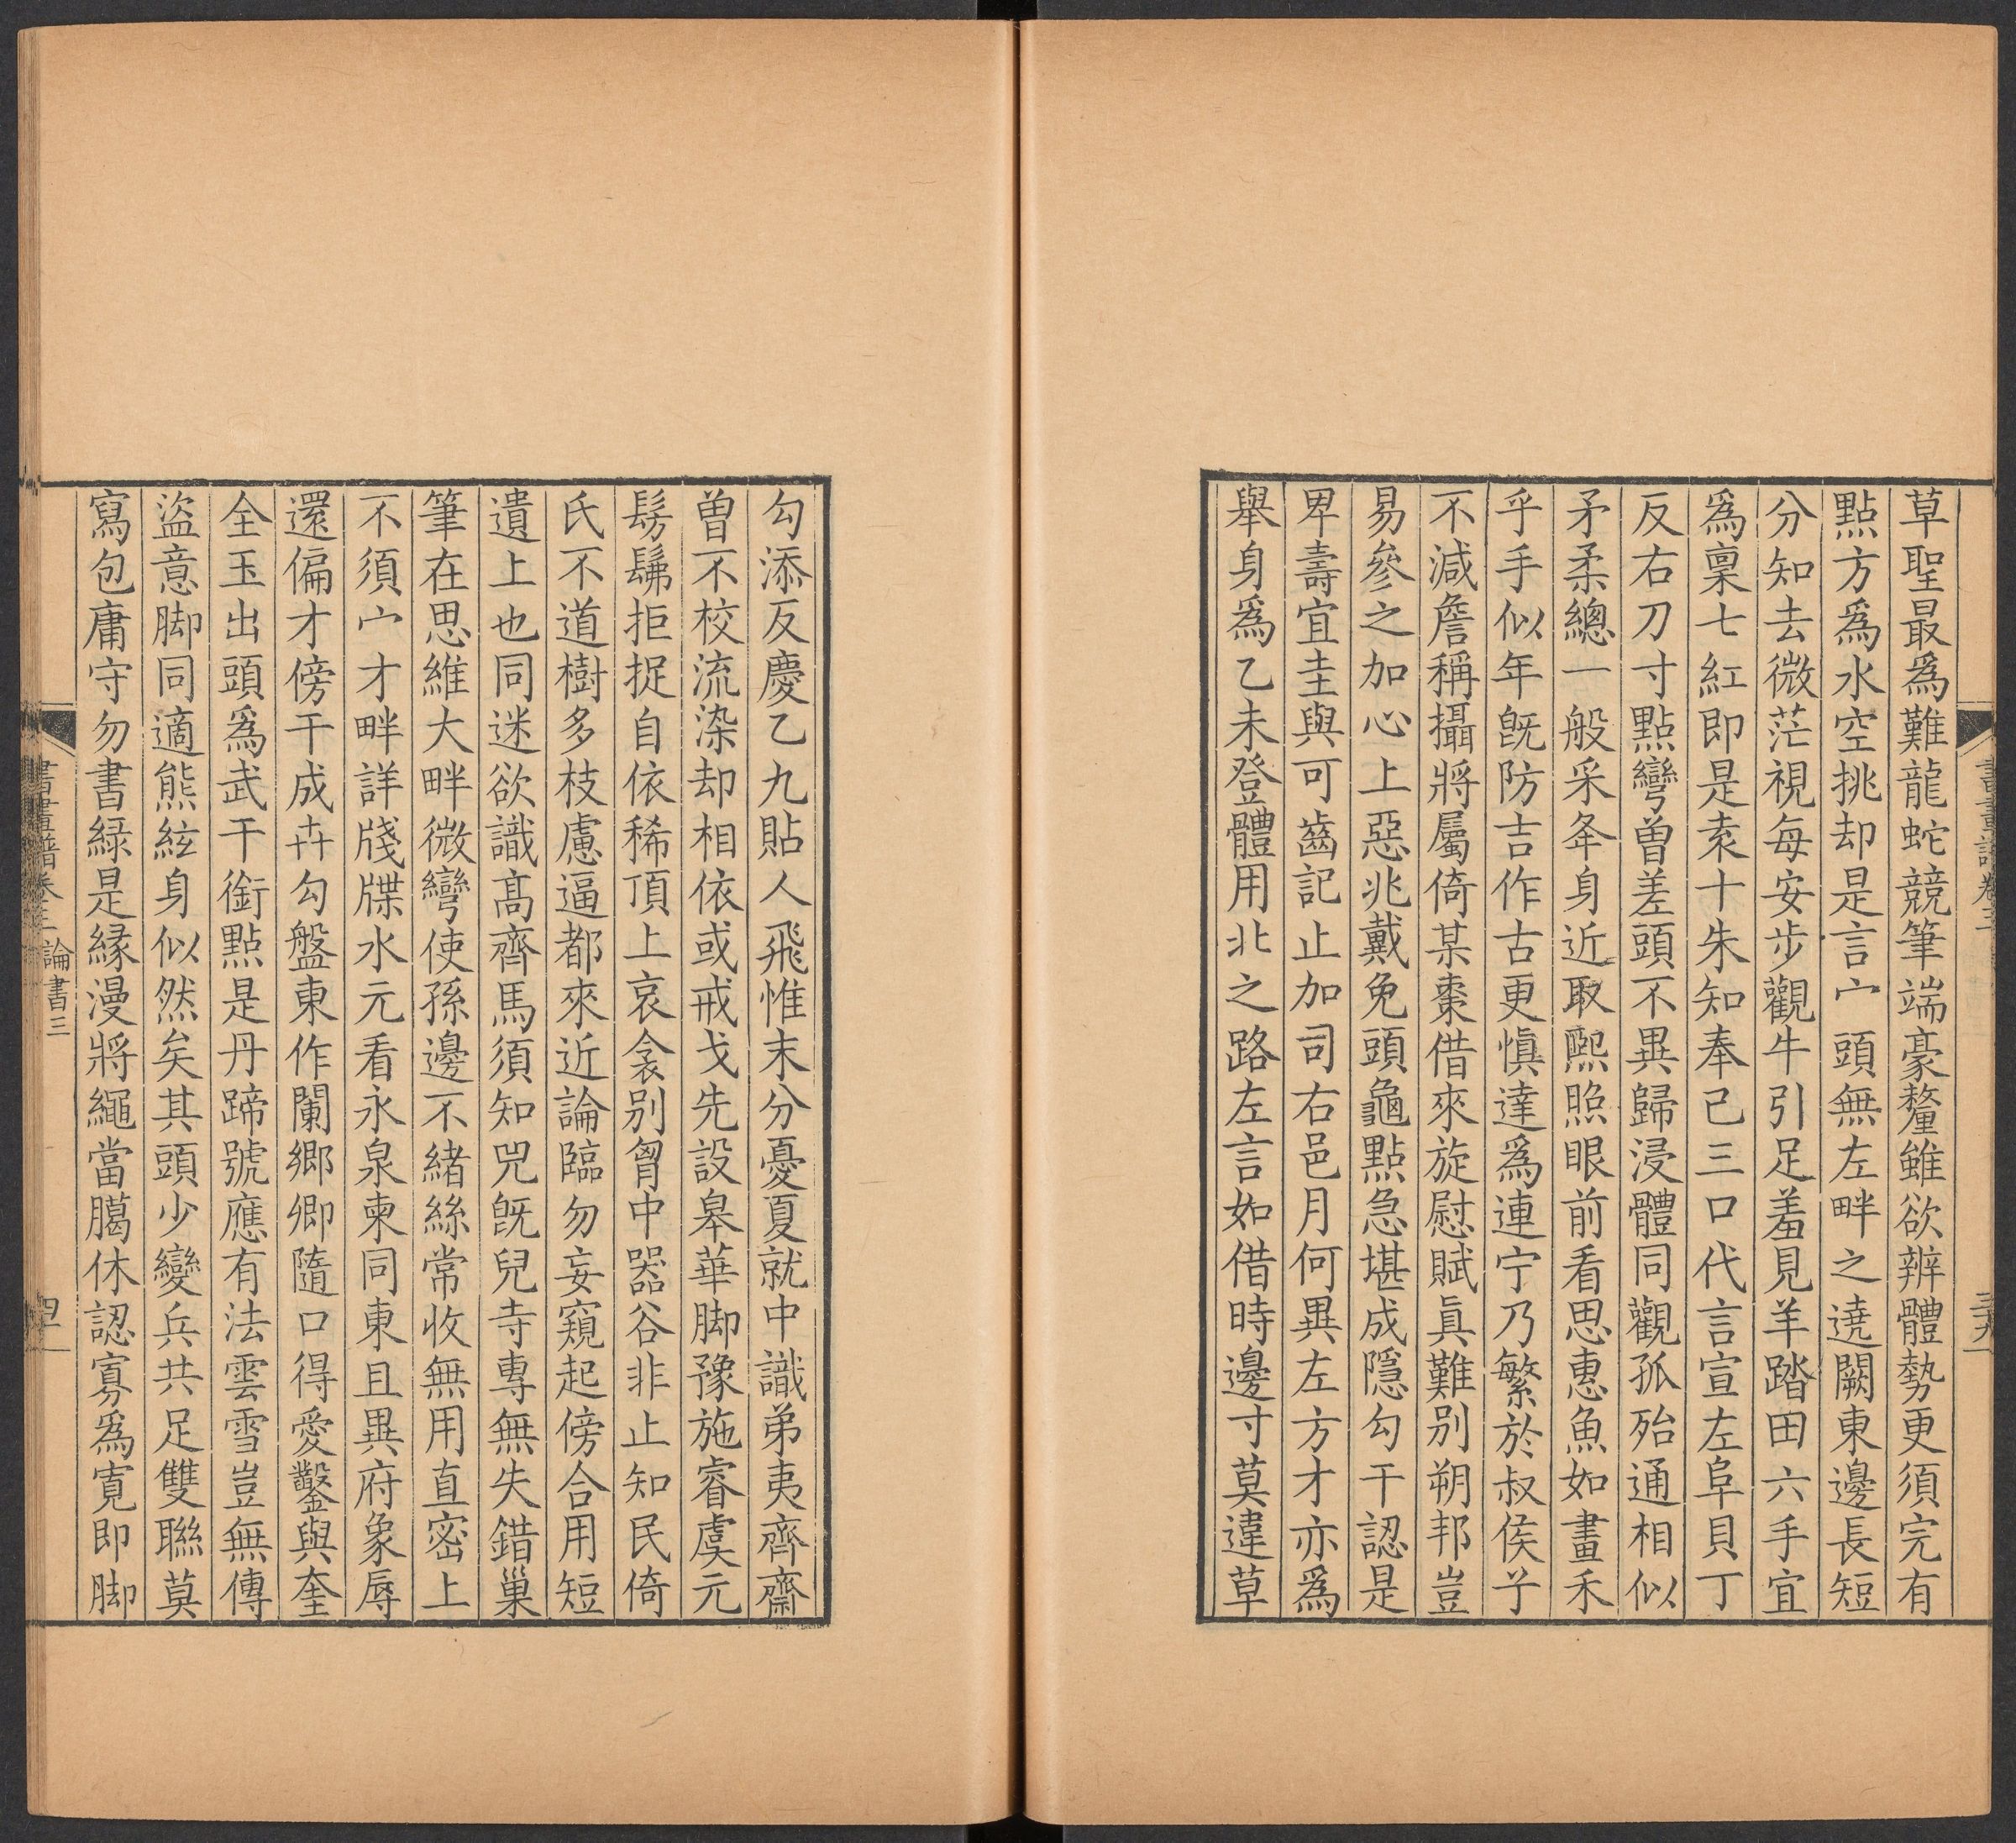 草聖最爲難龍蛇競筆端豪釐雖欲辨體勢更須完有
點方爲水空挑却是言宀頭無左畔之遶闕東邊長短
分知去微茫視每安步觀牛引足羞見羊踏田六手宜
爲稟七紅即是袁十朱知奉已三口代言宣左阜貝丁
反右刀寸點彎曾差頭不異歸浸體同觀孤殆通相似
矛柔總一般采夅身近取熈照眼前看思惠魚如畫禾
乎手似年旣防吉作古更愼達爲連宁乃繁於叔侯孑
不減詹稱攝將屬倚某棗借來旋慰賦眞難别朔邦豈
易參之加心上惡兆戴免頭龜點急堪成隱勾干認是
卑壽宜圭與可齒記止加司右邑月何異左方才亦爲
舉身爲乙未登體用北之路左言如借時邊寸莫違草
勾添反慶乙九貼人飛惟末分憂夏就中識弟夷齊齋
曾不校流染却相依或戒戈先設皋華脚豫施睿虞元
髣髴拒捉自依稀頂上哀衾别胷中器谷非止知民倚
氏不道樹多枝慮逼都來近論臨勿妄窺起傍合用短
遺上也同迷欲識髙齊馬須知咒旣兒寺專無失錯巢
筆在思維大畔微彎使孫邊不緒絲常收無用直密上
不須宀才畔詳牋牒水元看永泉柬同東且異府象辱
還偏才傍干成卉勾盤東作闌鄉卿隨口得愛鑿與奎
全玉出頭爲武干銜點是丹蹄號應有法雲雪豈無傳
盜意脚同適熊絃身似然矣其頭少變兵共足雙聯莫
寫包庸守勿書緑是縁漫將繩當臈休認寡爲寛即脚
書畫譜卷三 論書三